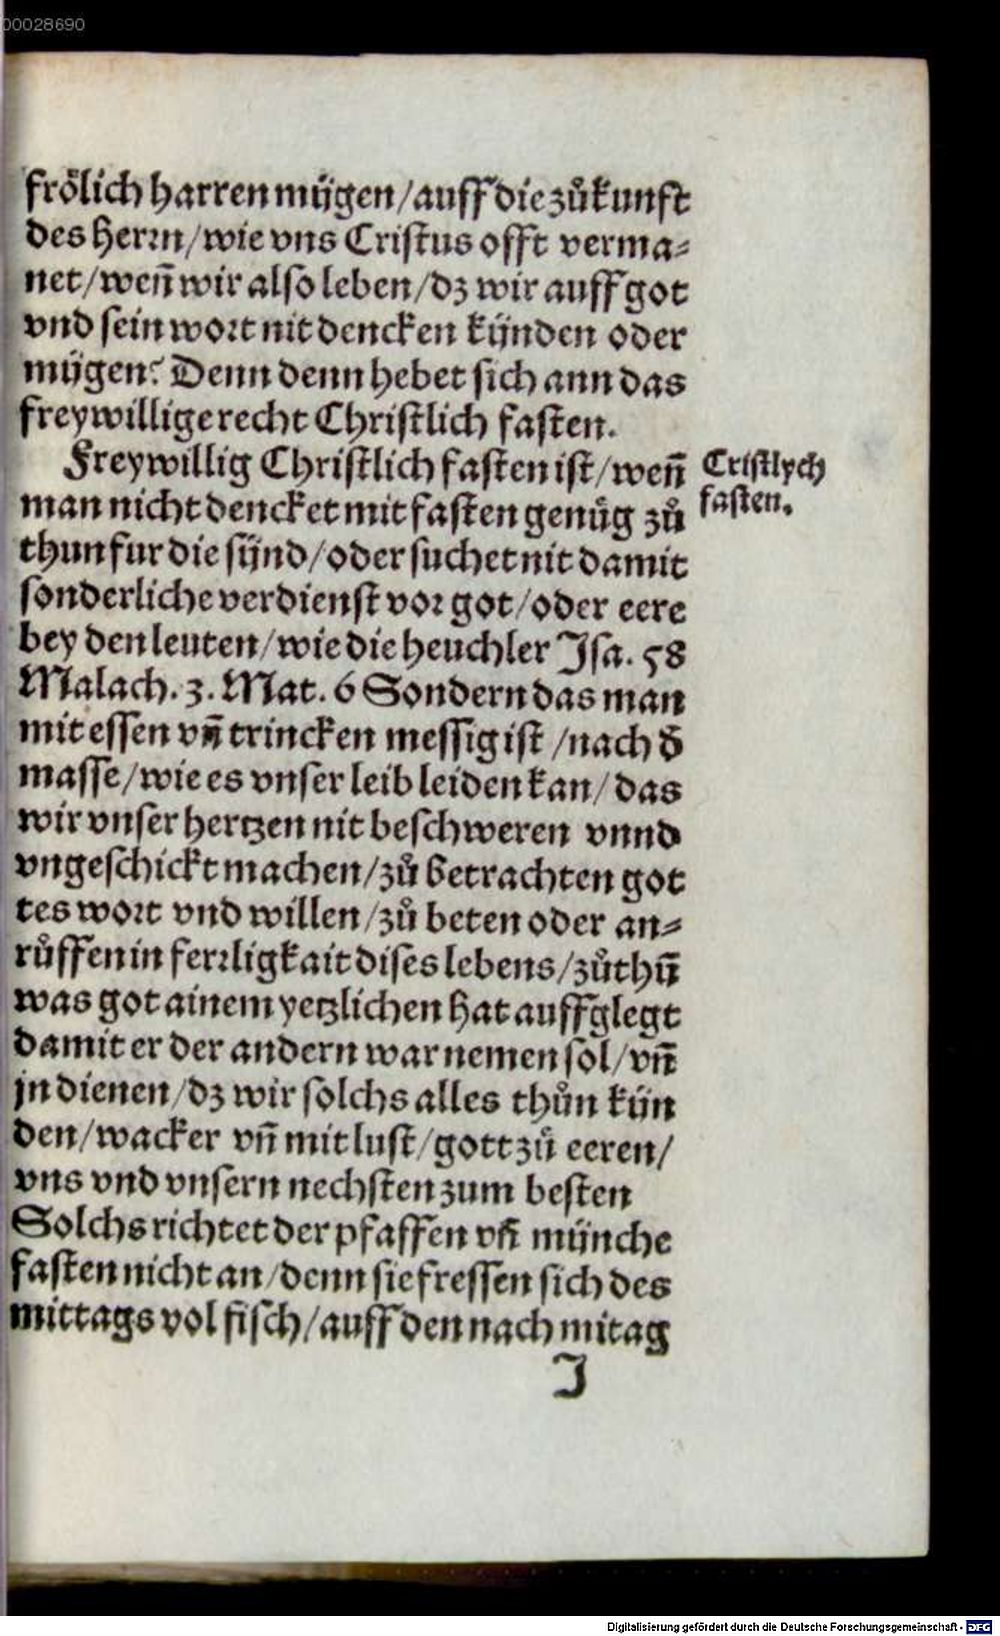 00028690
frölich harren mügen/auff die zůkunft
des Herrn/wie vns Cristus offt verma⸗
net/weñ wir also leben/dz wir auff got
vnd sein wort nit dencken künden oder
mügen? Denn denn hebet sich ann das
freywillige recht Christlich fasten.
Freywillig Christlich fasten ist/weñ
Cristlych
man nicht dencket mit fasten genůg zů
fasten.
thun fur die sünd/oder suchet nit damit
sonderliche verdienst vor got/oder eere
bey den leuten/wie die heuchler Isa. 58
Malach. 3. Mat. 6 Sondern das man
mit essen vñ trincken messig ist/nach đ
masse/wie es vnser leib leiden kan/das
wir vnser hertzen nit beschweren vnnd
vngeschickt machen/zů betrachten got
tes wort vnd willen/zů beten oder an⸗
růffen in ferrligkait dises lebens/zůthũ
was got ainem yetzlichen hat auffglegt
damit er der andern war nemen sol/vñ
jn dienen/dz wir solchs alles thůn kün
den/wacker vñ mit lust/gott zů eeren/
vns vnd vnsern nechsten zum besten
Solchs richtet der pfaffen vñ münche
fasten nicht an/denn sie fressen sich des
mittags vol fisch/auff den nach mitag
J
Digitalisierung gefördert durch die Deutsche Forschungsgemeinschaft - DFG